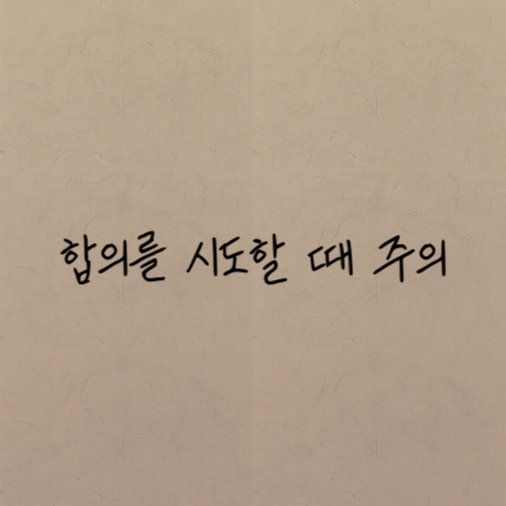 합의를 시도할 때 주의